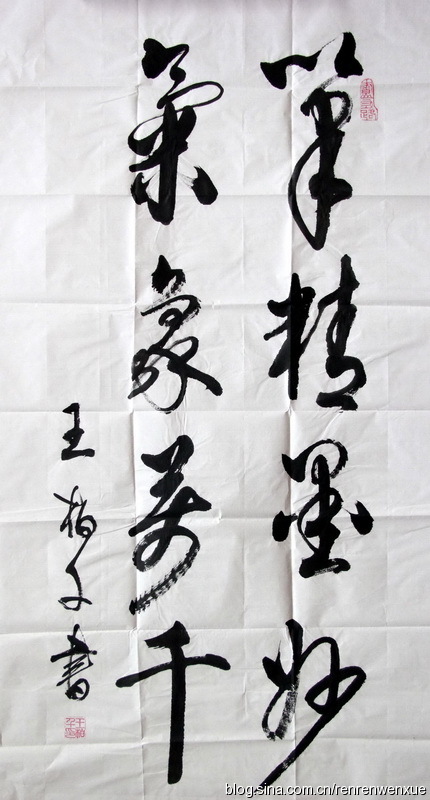 筆精墨妙
氣象萬千
王柏文書
blog.sina.com.cn/renrenwenxue